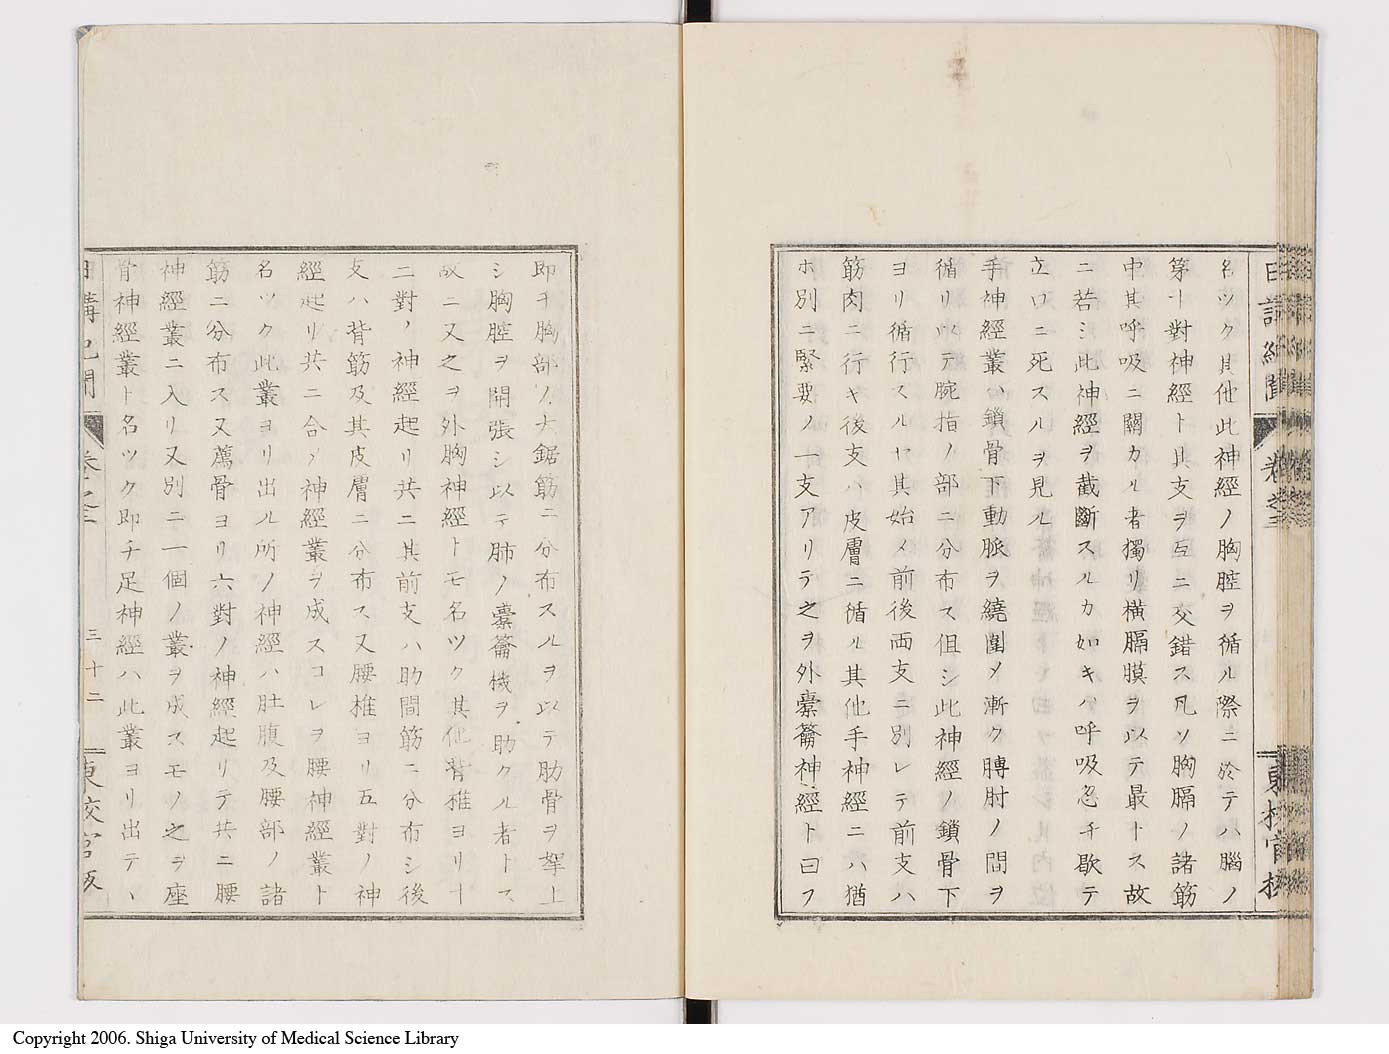 日講紀聞 卷之三 東校官板
名ツク其他此神經ノ胸腔ヲ循ル際ニ於テハ腦ノ
第十對神經ト其支ヲ互ニ交錯ス凡ソ胸膈ノ諸筋
中其呼吸ニ關カル者獨リ横膈膜ヲ以テ最トス故
ニ若シ此神經ヲ截斷スルカ如キハ呼吸忽チ歇テ
立口ニ死スルヲ見ル
手神經叢ハ鎖骨下動脈ヲ繞圍メ漸ク膊肘ノ間ヲ
循リ以テ腕指ノ部ニ分布ス伹シ此神經ノ鎖骨下
ヨリ循行スルヤ其始メ前後両支ニ別レテ前支ハ
筋肉ニ行キ後支ハ皮膚ニ循ル其他手神經ニハ猶
ホ別ニ緊要ノ一支アリテ之ヲ外橐籥神經ト曰フ
即チ胸部ノ大鋸筋ニ分布スルヲ以テ肋骨ヲ挈上
シ胸腔ヲ開張シ以テ肺ノ橐籥機ヲ助クル者トス
故ニ又之ヲ外胸神經トモ名ツク其他脊椎ヨリ十
二對ノ神經起リ共ニ其前支ハ肋間筋ニ分布シ後
支ハ背筋及其皮膚ニ分布ス又腰椎ヨリ五對ノ神
經起リ共ニ合メ神經叢ヲ成スコレヲ腰神經叢ト
名ツク此叢ヨリ出ル所ノ神經ハ肚腹及腰部ノ諸
筋ニ分布ス又薦骨ヨリ六對ノ神經起リテ共ニ腰
神經叢ニ入リ又別ニ一個ノ叢ヲ成スモノ之ヲ座
骨神經叢ト名ツク即チ足神經ハ此叢ヨリ出テヽ
日講紀聞 卷之三 三十二 東校官板
Copyright 2006. Shiga University of Medical Science Library